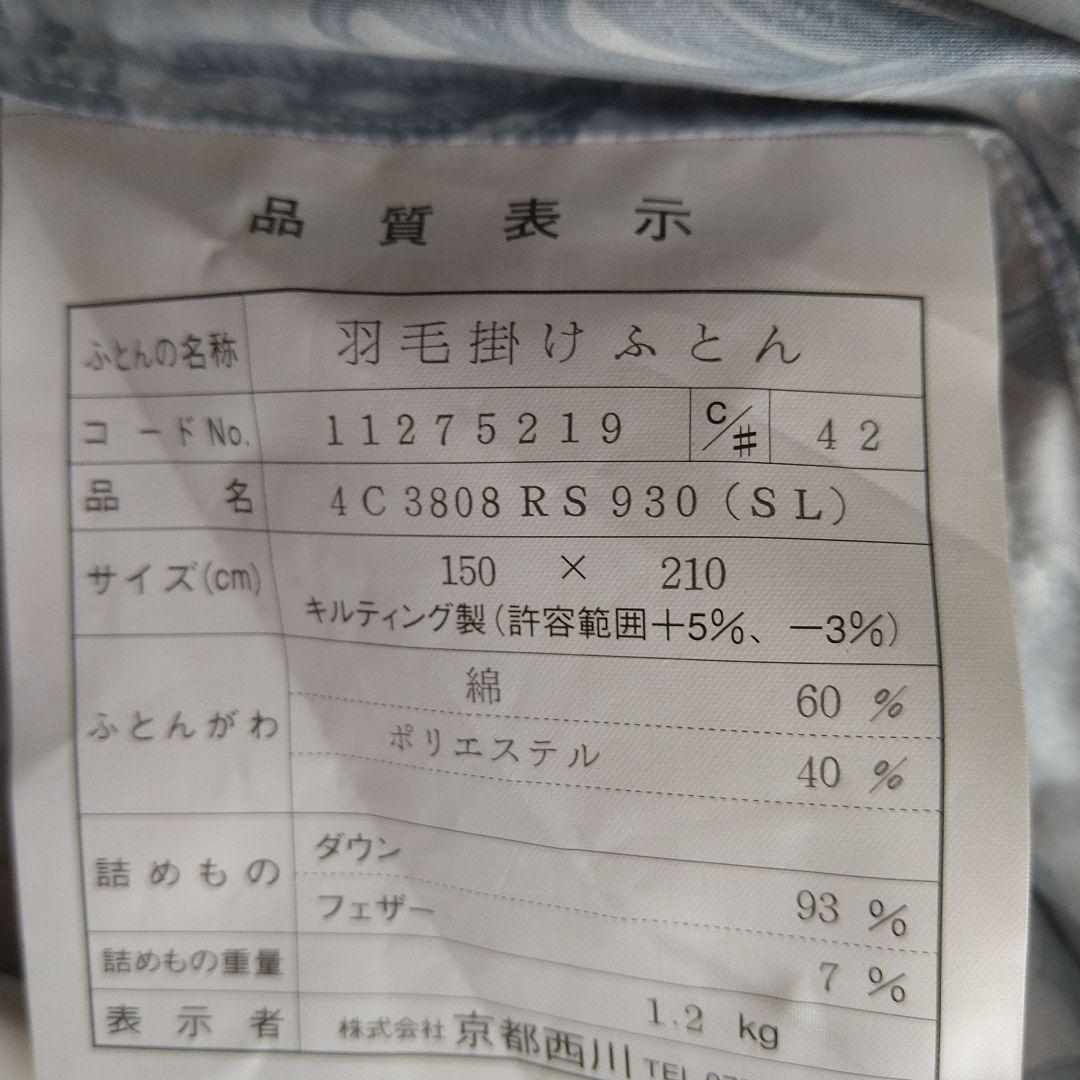 品質表示
ふとんの名称 羽毛掛けふとん
コードNo. 11275219 C/# 42
品名 4C3808RS930(SL)
サイズ(cm) 150 × 210
キルティング製(許容範囲+5%、-3%)
ふとんがわ 綿 60 %
ポリエステル 40 %
詰めもの ダウン 93 %
フェザー 7 %
詰めもの重量 1.2 kg
表示者 株式会社 京都西川 TEL